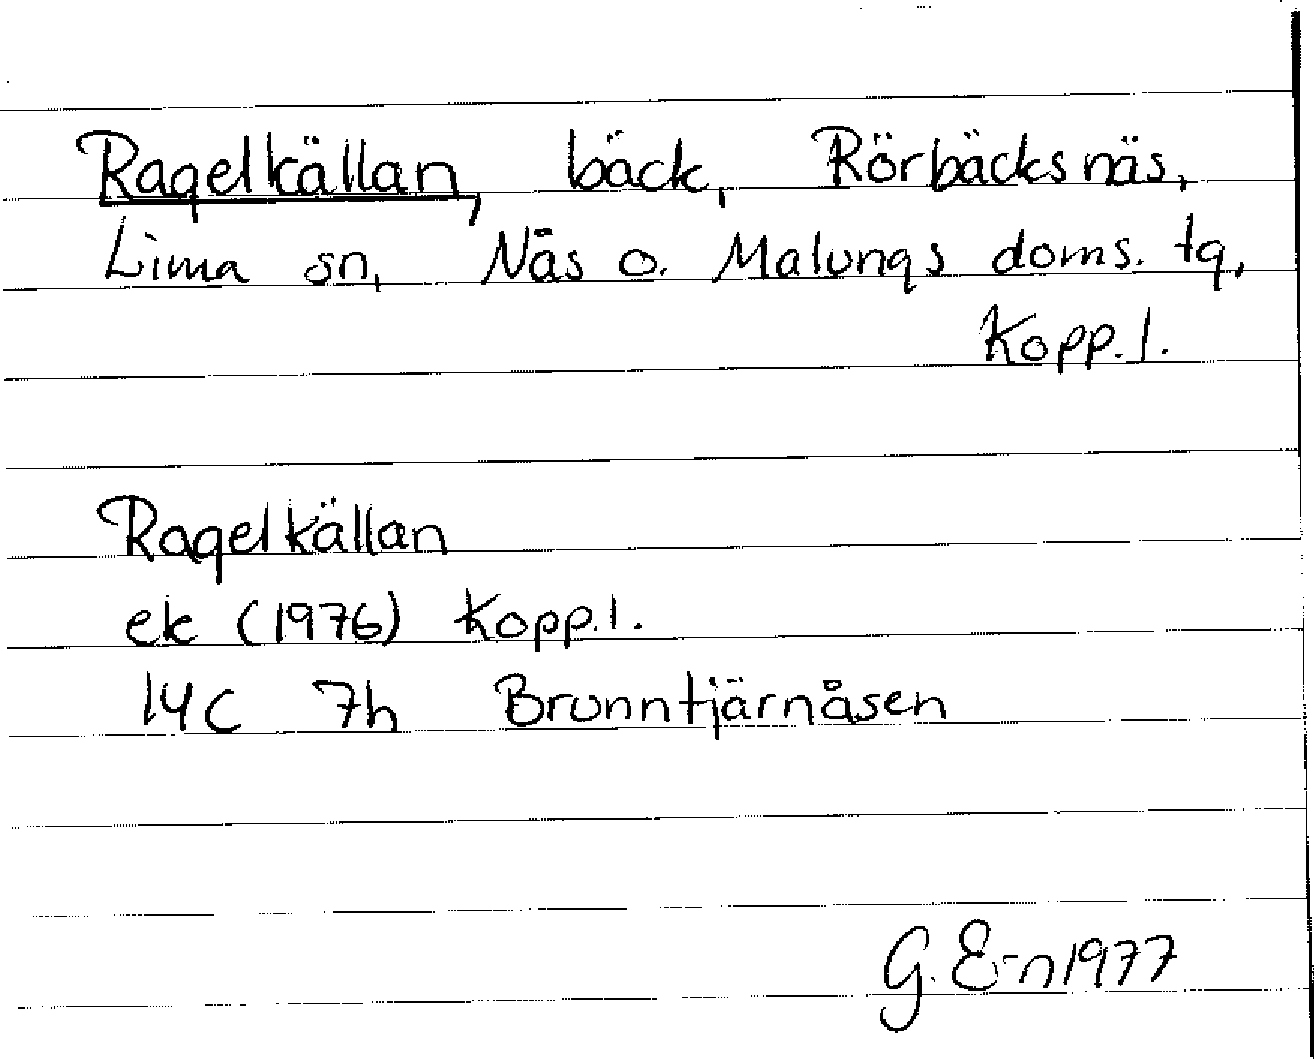 Ragelkällan, bäck, Rörbäcksnäs,
Lima sn, Näs o. Malungs doms. tg,
Kopp. l.
Ragelkällan
ek (1976) Kopp. l.
14C 7h Brunntjärnåsen
G. E-n 1977